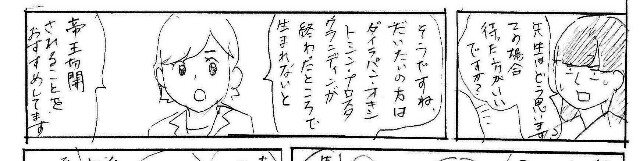 先生はどう思います?
この場合
待った方がいい
ですか?
そうですね
だいたいの方は
ダイラパン・オキシ
トシン・プロスタ
グランディンが
終わったところで
生まれないと
帝王切開
されることを
おすすめしてます